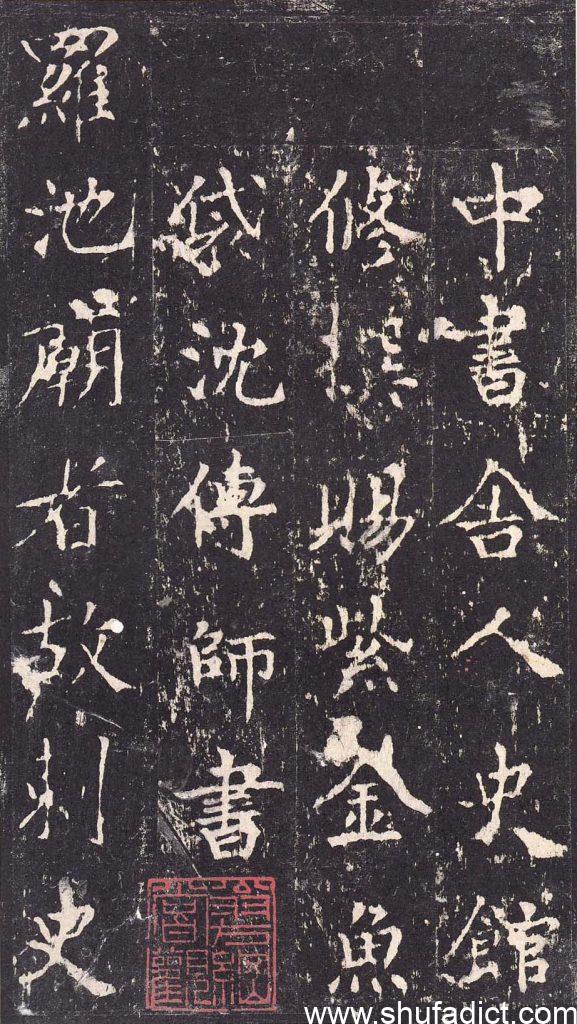 中書舍人史館
修撰賜紫金魚
袋沈傳師書
羅池廟者故刺史
www.shufadict.com